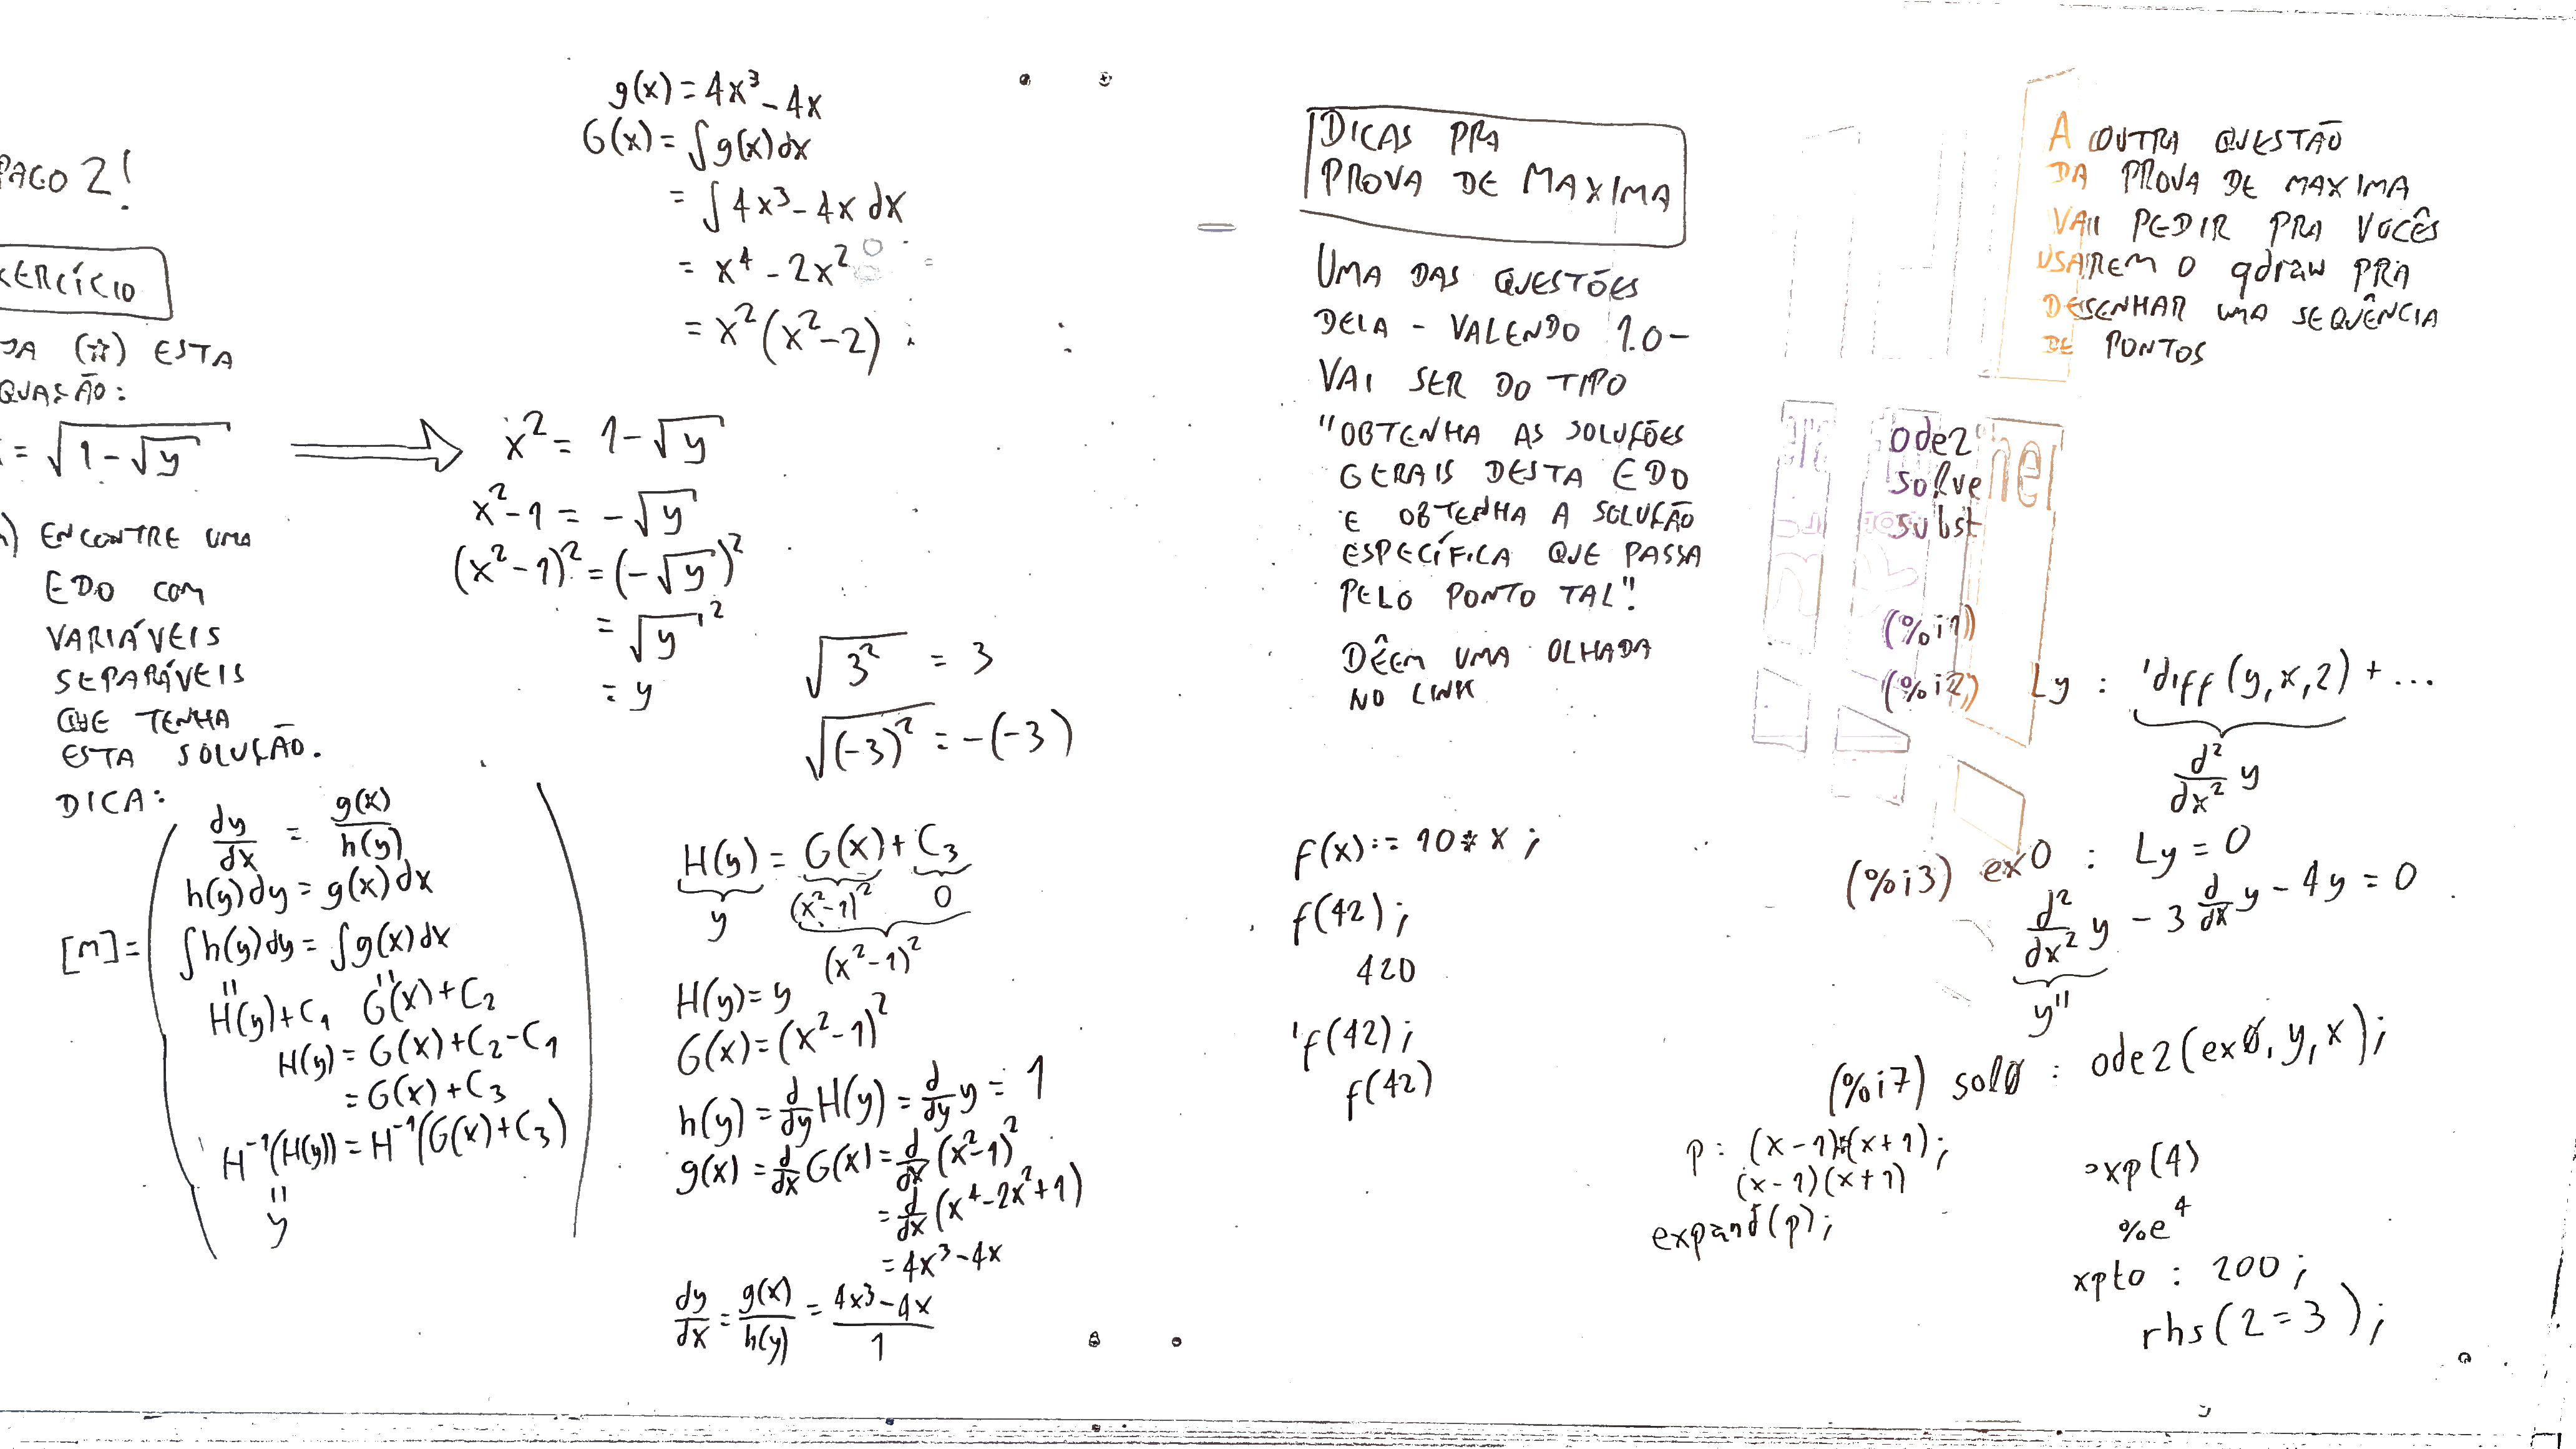 PACO 2!
XERCÍCIO
DA (☆) ESTA
QUAÇÃO:
= √(1-√y)
) ENCONTRE UMA
EDO COM
VARIÁVEIS
SEPARÁVEIS
QUE TENHA
ESTA SOLUÇÃO.
DICA:
[M] =
dy/dx = g(x)/h(y)
h(y)dy = g(x)dx
∫h(y)dy = ∫g(x)dx
" "
H(y)+C₁ G(x)+C₂
H(y) = G(x)+C₂-C₁
= G(x)+C₃
H⁻¹(H(y)) = H⁻¹(G(x)+C₃)
"
y
g(x) = 4x³-4x
G(x) = ∫g(x)dx
= ∫4x³-4x dx
= x⁴-2x²
= x²(x²-2)
x² = 1-√y
x²-1 = -√y
(x²-1)² = (-√y)²
= √y²
= y
√(3²) = 3
√((-3)²) = -(-3)
H(y) = G(x) + C₃
y (x²-1)² 0
(x²-1)²
H(y) = y
G(x) = (x²-1)²
h(y) = d/dy H(y) = d/dy y = 1
g(x) = d/dx G(x) = d/dx (x²-1)²
= d/dx (x⁴-2x²+1)
= 4x³-4x
dy/dx = g(x)/h(y) = (4x³-4x)/1
DICAS PRA
PROVA DE MAXIMA
UMA DAS QUESTÕES
DELA - VALENDO 1.0-
VAI SER DO TIPO
"OBTENHA AS SOLUÇÕES
GERAIS DESTA EDO
E OBTENHA A SOLUÇÃO
ESPECÍFICA QUE PASSA
PELO PONTO TAL".
DÊEM UMA OLHADA
NO LINK
f(x):= 10*x;
f(42);
420
'f(42);
f(42)
A OUTRA QUESTÃO
DA PROVA DE MAXIMA
VAI PEDIR PRA VOCÊS
USAREM O qdraw PRA
DESENHAR UMA SEQUÊNCIA
DE PONTOS
ode2
solve
subst
(%i1)
(%i2) Ly : 'diff(y,x,2) + ...
d²/dx² y
(%i3) ex0 : Ly = 0
d²/dx² y - 3 d/dx y - 4y = 0
y"
(%i7) sol0 : ode2(ex0, y, x);
p: (x-1)*(x+1);
(x-1)(x+1)
expand(p);
exp(4)
%e⁴
xpto : 200;
rhs(2=3);